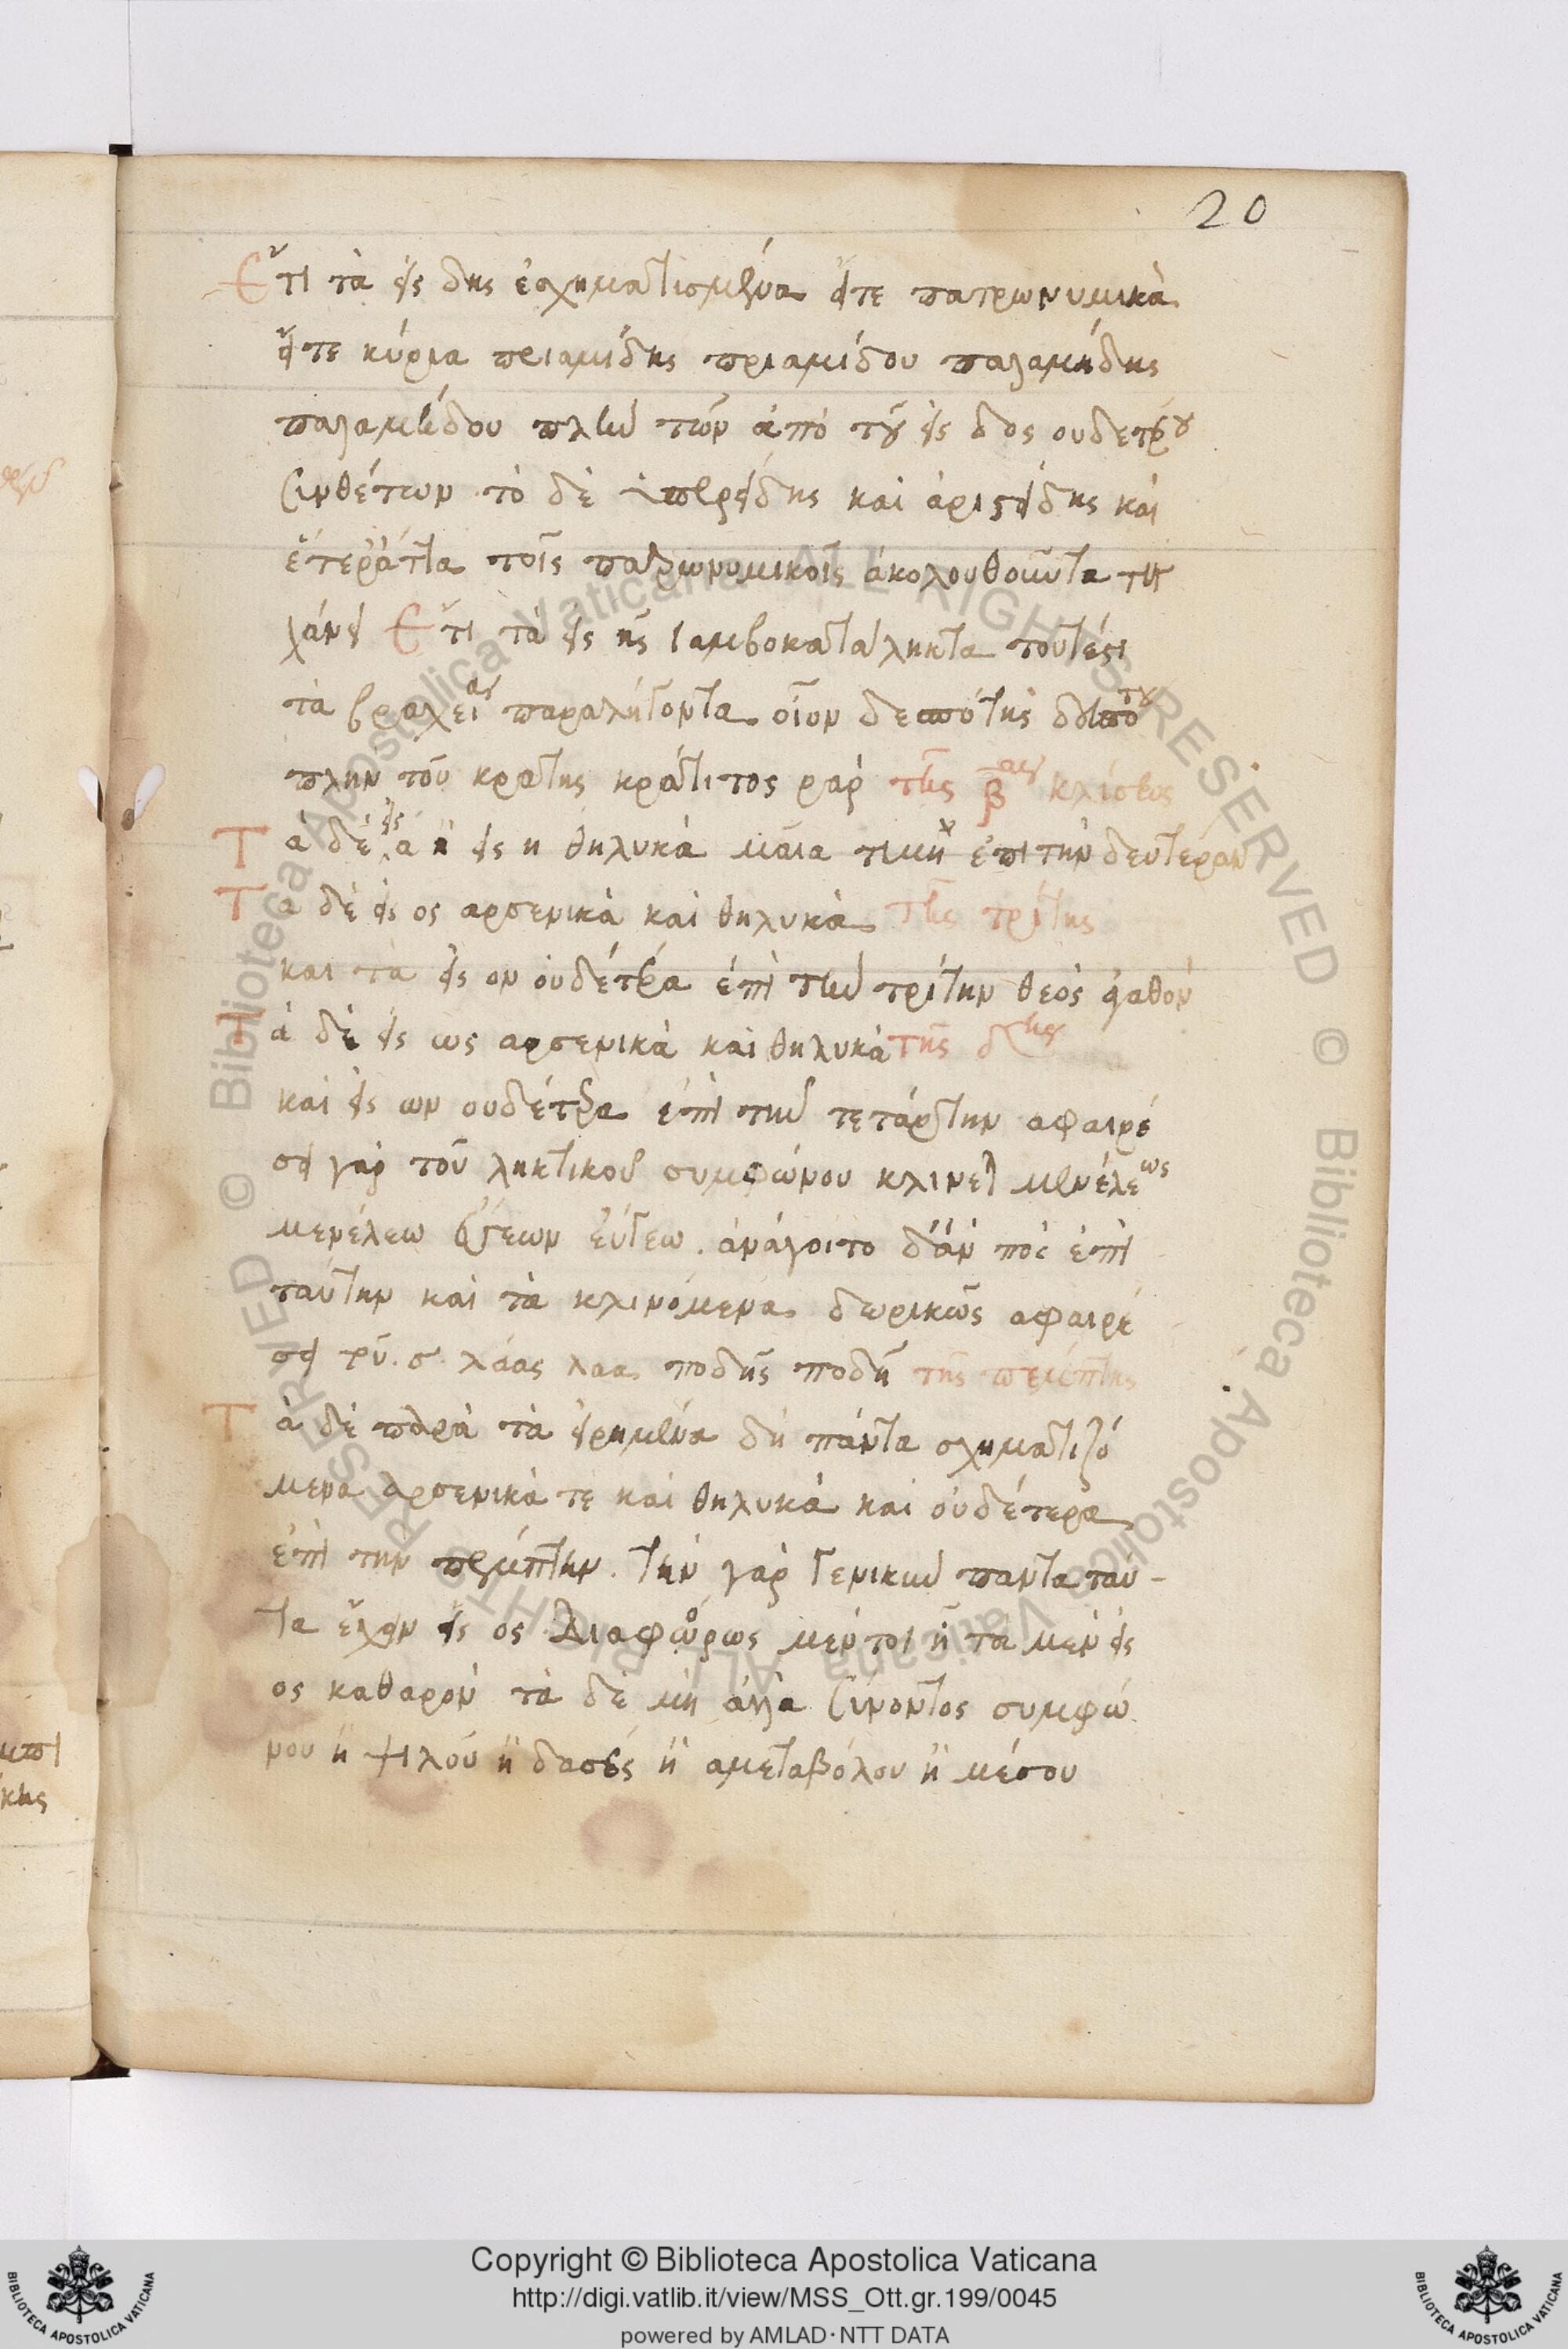 20
Ἔτι τὰ εἰς δης ἐσχηματισμένα εἴτε πατρωνυμικὰ
εἴτε κύρια πριαμίδης πριαμίδου παλαμήδης
παλαμήδου πλὴν τῶν ἀπὸ τοῦ εἰς δος ουδετέρου
συνθέτων τὸ δὲ ὑπερείδης καὶ ἀριστείδης καὶ
ἕτερἄττα τοῖς πατρωνυμικοῖς ἀκολουθοῦντα τυγ
χάνει Ἔτι τὰ εἰς ης ἰαμβοκατάληκτα τουτέστι
τὰ βραχείας παραλήγοντα οἷον δεσπότης δεσπότου
πλὴν τοῦ κρατης κράτητος γὰρ τῆς β̅ας κλίσεως
Τὰ δὲ εἰς α ἢ εἰς η θηλυκὰ μαῖα τιμὴ ἐπι τὴν δευτέραν
Τὰ δὲ εἰς ος αρσενικὰ καὶ θηλυκὰ τῆς τρίτης
και τα εἰς ον οὐδέτερα ἐπὶ τὴν τρίτην θεὸς ἀγαθὸν
Τὰ δὲ εἰς ως αρσενικὰ καὶ θηλυκὰ τῆς δ της
καὶ εἰς ων ουδέτερα ἐπὶ τὴν τετάρτην αφαιρέ
σει γὰρ τοῦ ληκτικοῦ συμφώνου κλινεῖ μενέλεως
μενέλεω εὔγεων εὔγεω. ἀνάγοιτο δ'ἄν πος ἐπὶ
ταύτην καὶ τὰ κλινόμενα δωρικῶς αφαιρέ
σει τοῦ. σ. λάας λαα ποδῆς ποδῆ τῆς πέμπτης
Τὰ δὲ παρὰ τὰ εἰρημένα δὴ πάντα σχηματιζό
μενα αρσενικὰ τὲ καὶ θηλυκὰ καὶ οὐδέτερα
ἐπὶ τὴν πέμπτην. τὴν γὰρ γενικὴν παντα ταῦ-
τα ἔχειν εἰς ος Διαφόρως μέν τοι ἢ τὰ μὲν εἰς
ος καθαρὸν τὰ δὲ μὴ ἀλλὰ συνόντος συμφώ
νου ἢ ψιλοῦ ἢ δασέος ἢ αμεταβόλου ἢ μέσου
Copyright © Biblioteca Apostolica Vaticana
http://digi.vatlib.it/view/MSS_Ott.gr.199/0045
powered by AMLAD·NTT DATA